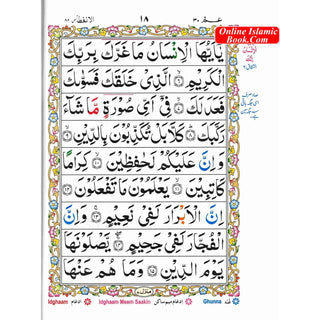 الانفطار ٨٢
١٨
عَمَّ ٣٠
Online Islamic
Book.Com
يٰۤاَيُّهَا الْاِنْسَانُ مَا غَرَّكَ بِرَبِّكَ
الْكَرِيْمِ ۙ الَّذِيْ خَلَقَكَ فَسَوّٰىكَ
فَعَدَلَكَ ۙ فِيْۤ اَيِّ صُوْرَةٍ مَّا شَآءَ
رَكَّبَكَ ؕ كَلَّا بَلْ تُكَذِّبُوْنَ بِالدِّيْنِ ۙ
وَاِنَّ عَلَيْكُمْ لَحٰفِظِيْنَ ۙ كِرَامًا
كَاتِبِيْنَ ۙ يَعْلَمُوْنَ مَا تَفْعَلُوْنَ
اِنَّ الْاَبْرَارَ لَفِيْ نَعِيْمٍ ۚ وَاِنَّ
الْفُجَّارَ لَفِيْ جَحِيْمٍ ۖ يَّصْلَوْنَهَا
يَوْمَ الدِّيْنِ وَمَا هُمْ عَنْهَا
منزل ٧
Idghaam ادغام
Idghaam Meem Saakin ادغام میم ساکن
Ghunna غنہ